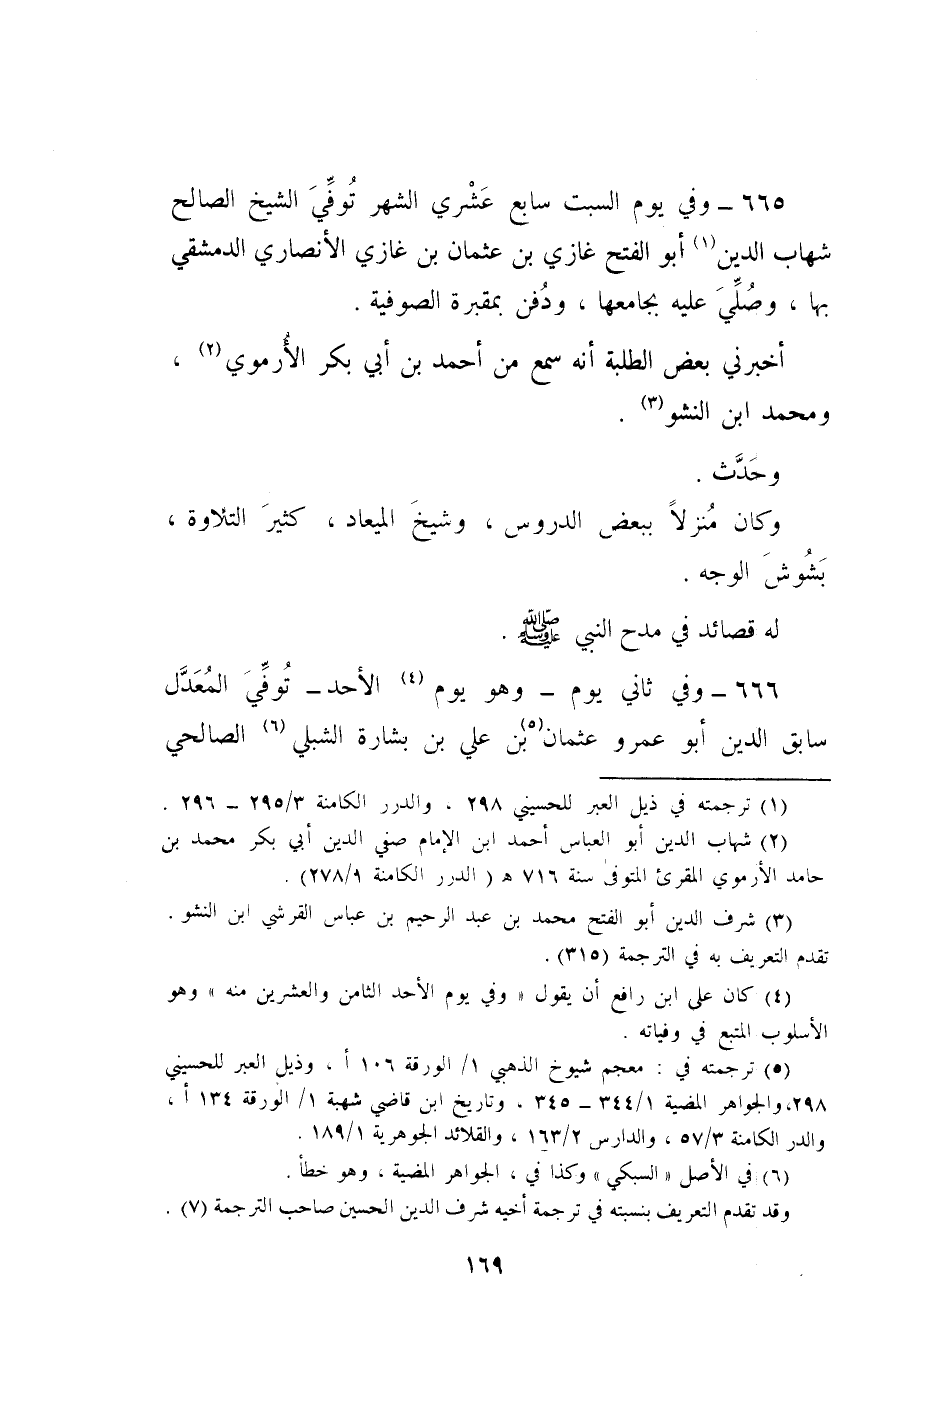 ٦٦٥ ــ وفي يوم السبت سابع عَشْري الشهر تُوفِّيَ الشيخ الصالح
شهاب الدين(١) أبو الفتح غازي بن عثمان بن غازي الأنصاري الدمشقي
بها ، وصُلِّيَ عليه بجامعها ، ودُفن بمقبرة الصوفية .
أخبرني بعض الطلبة أنه سمع من أحمد بن أبي بكر الأُرموي(٢) ،
ومحمد ابن النشو(٣) .
وحَدَّث .
وكان مُنزلاً ببعض الدروس ، وشيخَ الميعاد ، كثيرَ التلاوة ،
بَشُوشَ الوجه .
له قصائد في مدح النبي ﷺ .
٦٦٦ ــ وفي ثاني يوم ــ وهو يوم (٤) الأحد ــ تُوفِّيَ المُعَدَّل
سابق الدين أبو عمرو عثمان(٥) بن علي بن بشارة الشبلي(٦) الصالحي
(١) ترجمته في ذيل العبر للحسيني ٢٩٨ ، والدرر الكامنة ٢٩٥/٣ ــ ٢٩٦ .
(٢) شهاب الدين أبو العباس أحمد ابن الإمام صفي الدين أبي بكر محمد بن
حامد الأرموي المقرئ المتوفى سنة ٧١٦ هـ ( الدرر الكامنة ٢٧٨/٩) .
(٣) شرف الدين أبو الفتح محمد بن عبد الرحيم بن عباس القرشي ابن النشو .
تقدم التعريف به في الترجمة (٣١٥) .
(٤) كان على ابن رافع أن يقول « وفي يوم الأحد الثامن والعشرين منه » وهو
الأسلوب المتبع في وفياته .
(٥) ترجمته في : معجم شيوخ الذهبي ١/ الورقة ١٠٦ أ ، وذيل العبر للحسيني
٢٩٨، والجواهر المضية ٣٤٤/١ ــ ٣٤٥ ، وتاريخ ابن قاضي شهبة ١/ الورقة ١٣٤ أ ،
والدر الكامنة ٥٧/٣ ، والدارس ١٦٣/٢ ، والقلائد الجوهرية ١٨٩/١ .
(٦) في الأصل « السبكي » وكذا في ، الجواهر المضية ، وهو خطأ .
وقد تقدم التعريف بنسبته في ترجمة أخيه شرف الدين الحسين صاحب الترجمة (٧) .
١٦٩